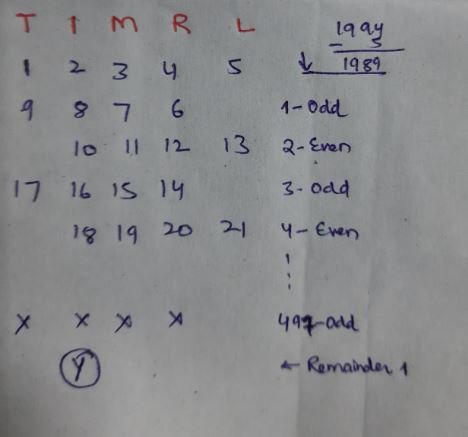 T I M R L
1994
- 5
1989
1 2 3 4 5 ↓
9 8 7 6 1-Odd
10 11 12 13 2-Even
17 16 15 14 3-Odd
18 19 20 21 4-Even
x x x x 497-odd
Y ← Remainder 1